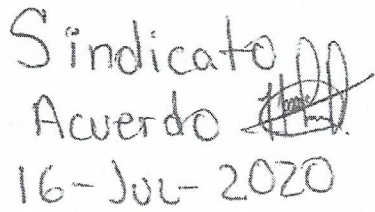 Sindicato
Acuerdo
16-Jul-2020